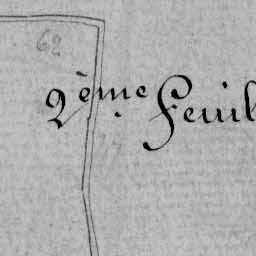 62
2ème Feuil